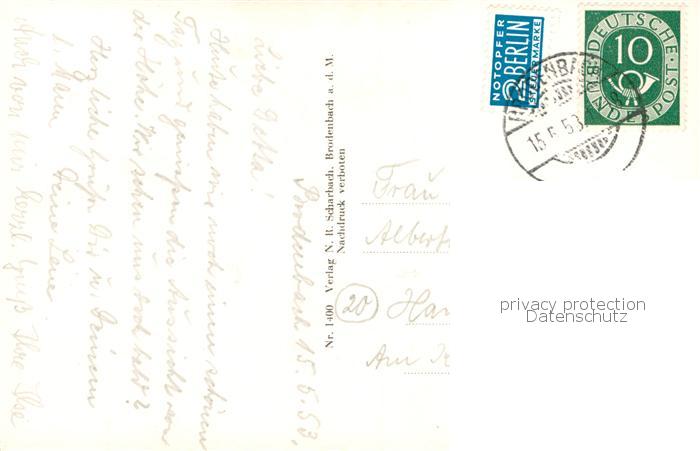 Brodenbach 15.5.53.
Liebe Betha!
Heute haben wir noch einen schönen
Tag und genießen die Aussicht von
der Höhe. Wir sehen uns doch bald?
Herzliche Grüße Dir u. Deinem
l. Mann Deine Leni
Auch von mir herzl. Gruß Ihre Ilse
Nr. 1400 Verlag N. R. Scharbach, Brodenbach a. d. M.
Nachdruck verboten
NOTOPFER
2 BERLIN
STEUERMARKE
DEUTSCHE
10
BUNDESPOST
BRODENBACH
15.5.53
Frau
Albert
(20) Han
Am
privacy protection
Datenschutz